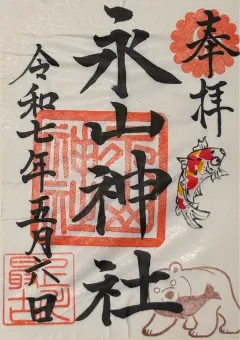 奉拝
永山神社
令和七年 五月六日